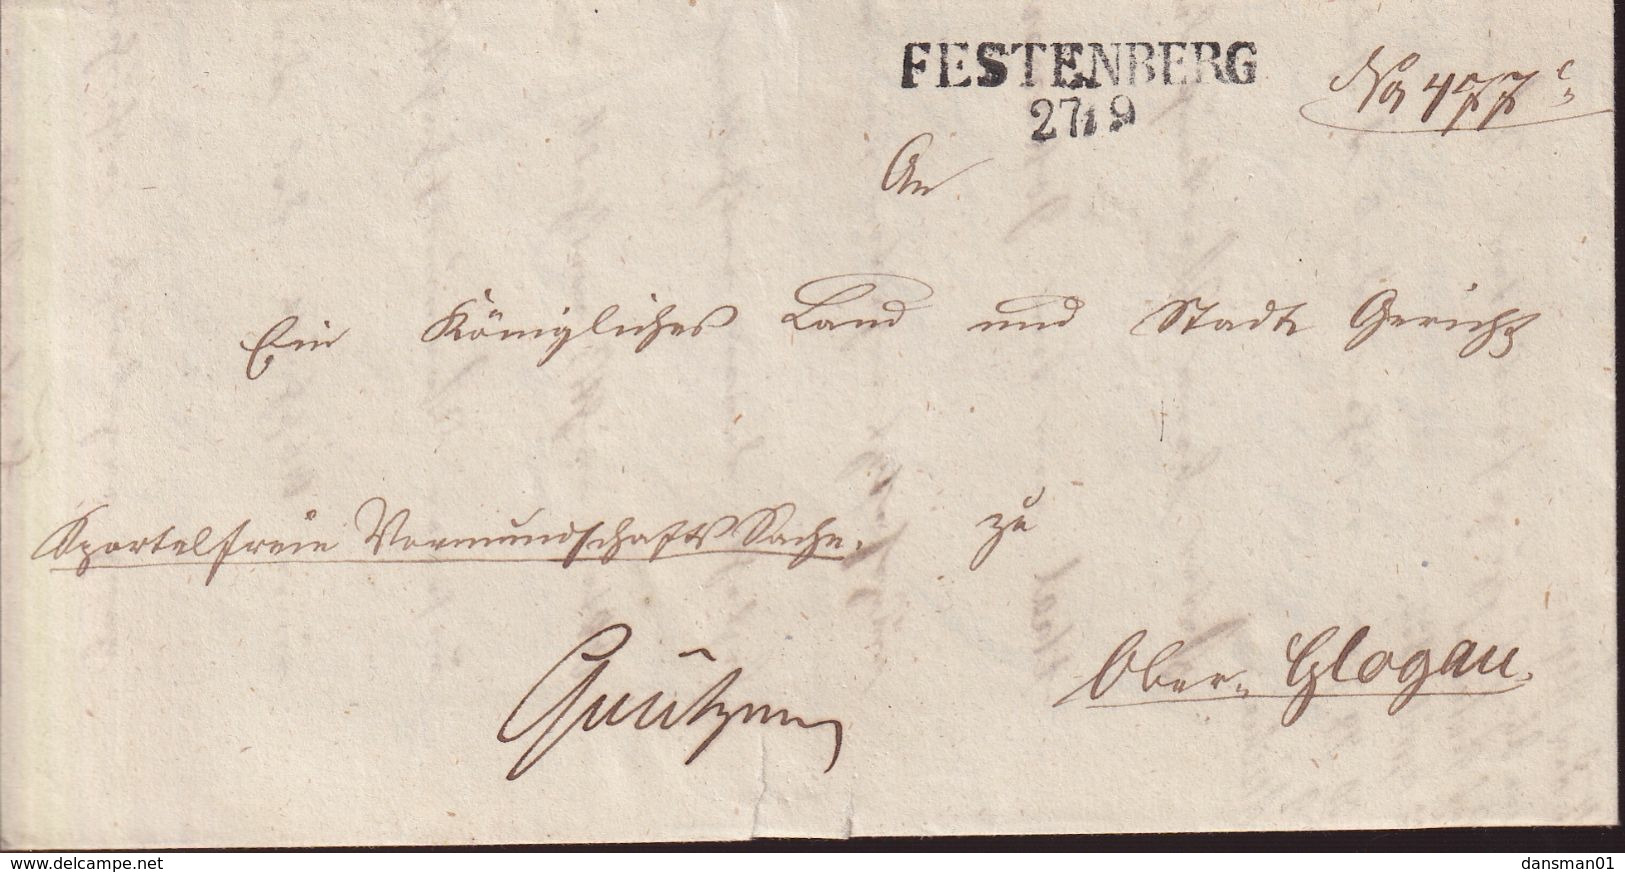 FESTENBERG
27/9
No 477
An
Ein Königliches Land und Stadt Gericht
Sportelfreie Vormundschafts Sache.
zu
Ober-Glogau.
www.delcampe.net
dansman01